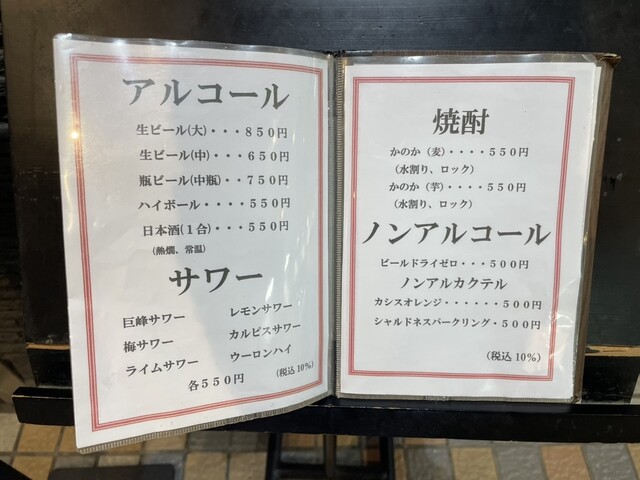 アルコール
生ビール(大)・・・８５０円
生ビール(中)・・・６５０円
瓶ビール(中瓶)・・７５０円
ハイボール・・・・５５０円
日本酒(１合)・・・５５０円
(熱燗、常温)
サワー
巨峰サワー レモンサワー
梅サワー カルピスサワー
ライムサワー ウーロンハイ
各５５０円 (税込10%)
焼酎
かのか（麦）・・・・５５０円
（水割り、ロック）
かのか（芋）・・・・５５０円
（水割り、ロック）
ノンアルコール
ビールドライゼロ・・・５００円
ノンアルカクテル
カシスオレンジ・・・・・・５００円
シャルドネスパークリング・５００円
(税込10%)